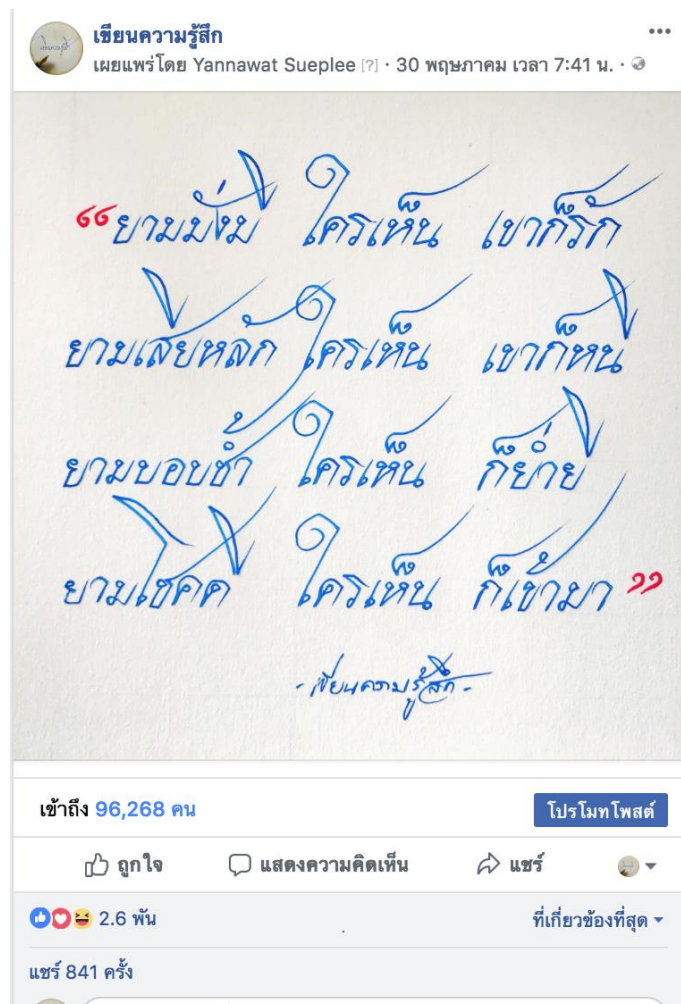 เขียนความรู้สึก
เผยแพร่โดย Yannawat Sueplee [?] · 30 พฤษภาคม เวลา 7:41 น. ·
“ยามมั่งมี ใครเห็น เขาก็รัก
ยามเสียหลัก ใครเห็น เขาก็หนี
ยามบอบช้ำ ใครเห็น ก็ย่ำยี
ยามโชคดี ใครเห็น ก็เข้ามา”
- เขียนความรู้สึก -
เข้าถึง 96,268 คน
โปรโมทโพสต์
ถูกใจ แสดงความคิดเห็น แชร์
2.6 พัน ที่เกี่ยวข้องที่สุด
แชร์ 841 ครั้ง